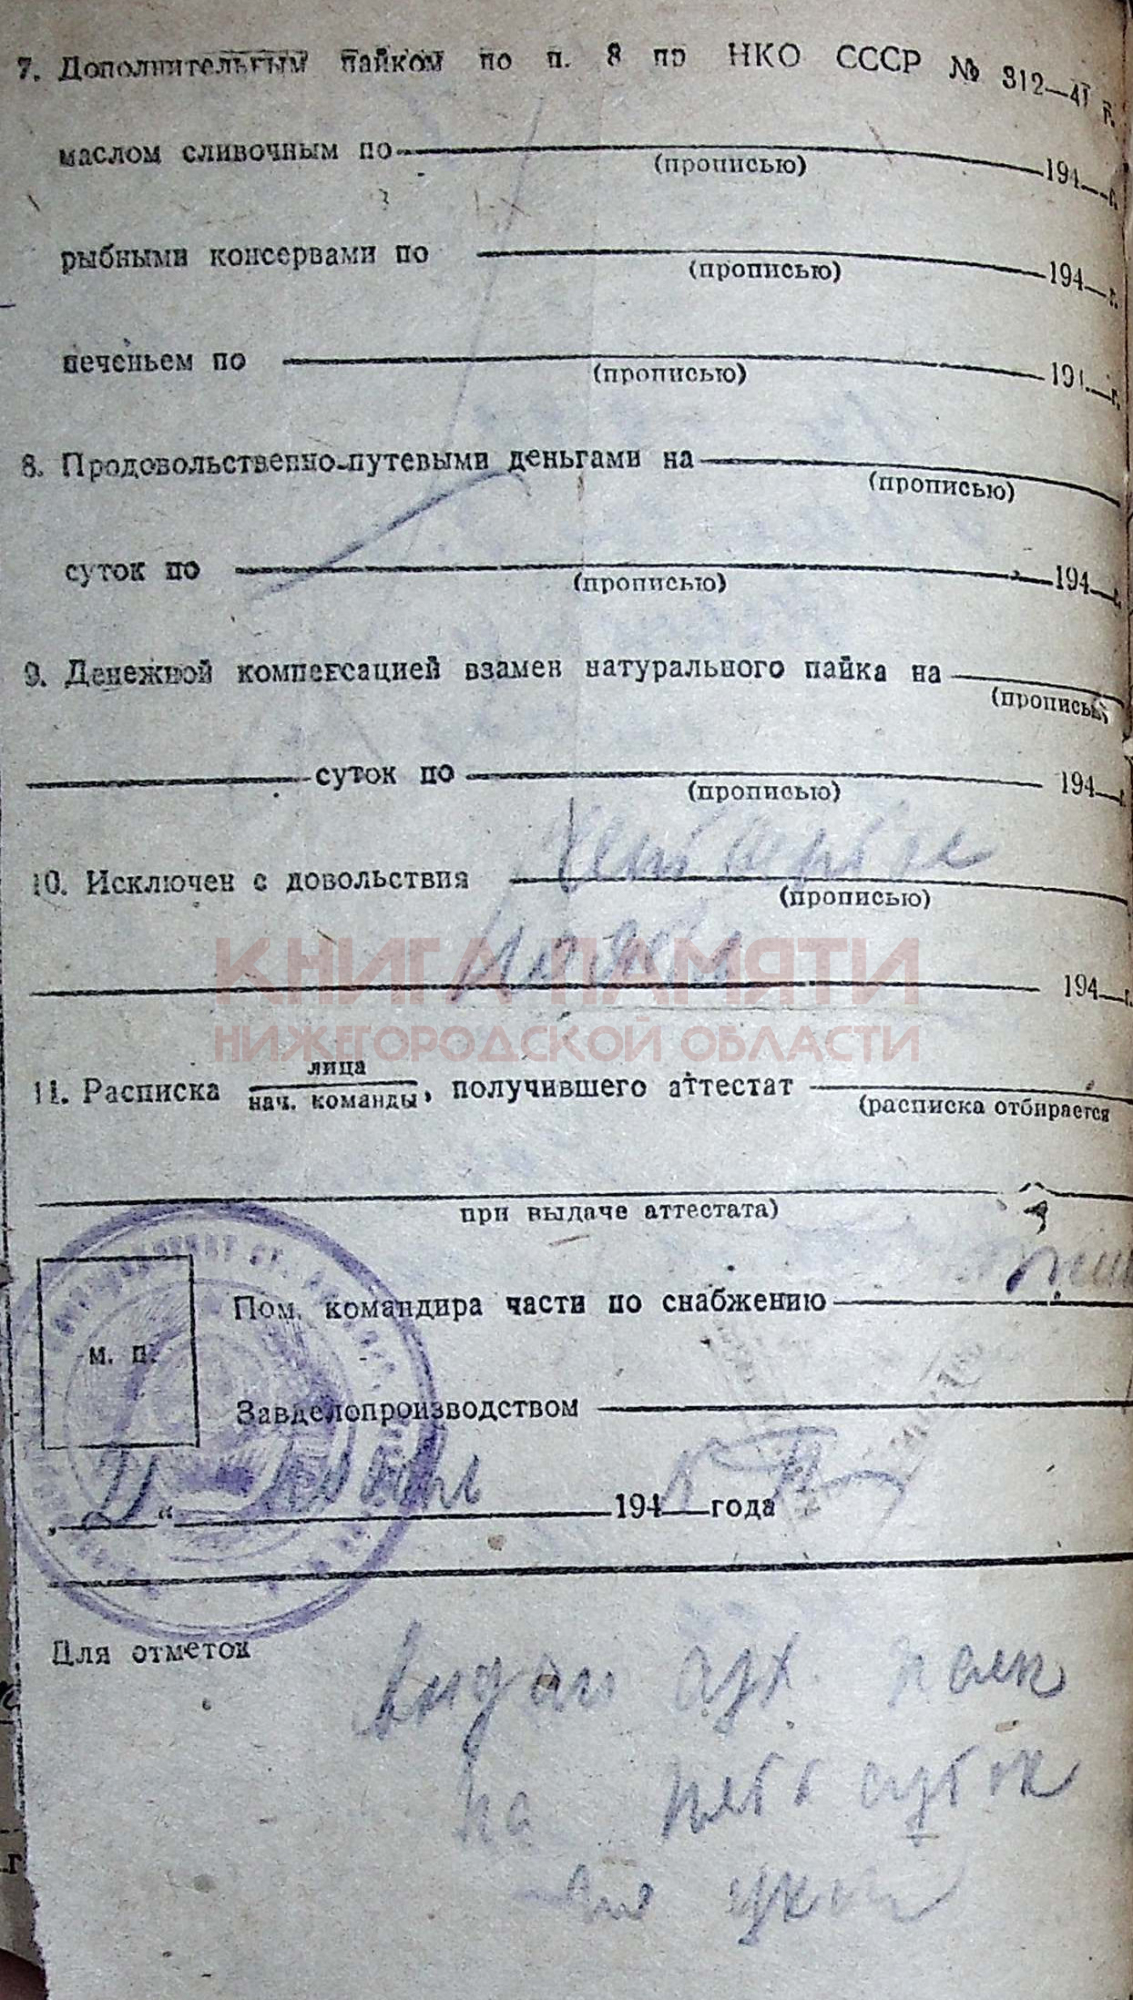 7. Дополнительным пайком по п. 8 пр НКО СССР № 312—41 г.
маслом сливочным по 194 г.
(прописью)
рыбными консервами по 194 г.
(прописью)
печеньем по 194 г.
(прописью)
8. Продовольственно-путевыми деньгами на
(прописью)
суток по 194 г.
(прописью)
9. Денежной компенсацией взамен натурального пайка на
(прописью)
суток по 194 г.
(прописью)
10. Исключен с довольствия
(прописью)
ноября 194 г.
КНИГА ПАМЯТИ
НИЖЕГОРОДСКОЙ ОБЛАСТИ
11. Расписка лица
нач. команды, получившего аттестат
(расписка отбирается
при выдаче аттестата)
Пом. командира части по снабжению
м. п.
Завделопроизводством
„ 21 “ ноябрь 194 года
Для отметок
Выдан сух. паек
на пять суток